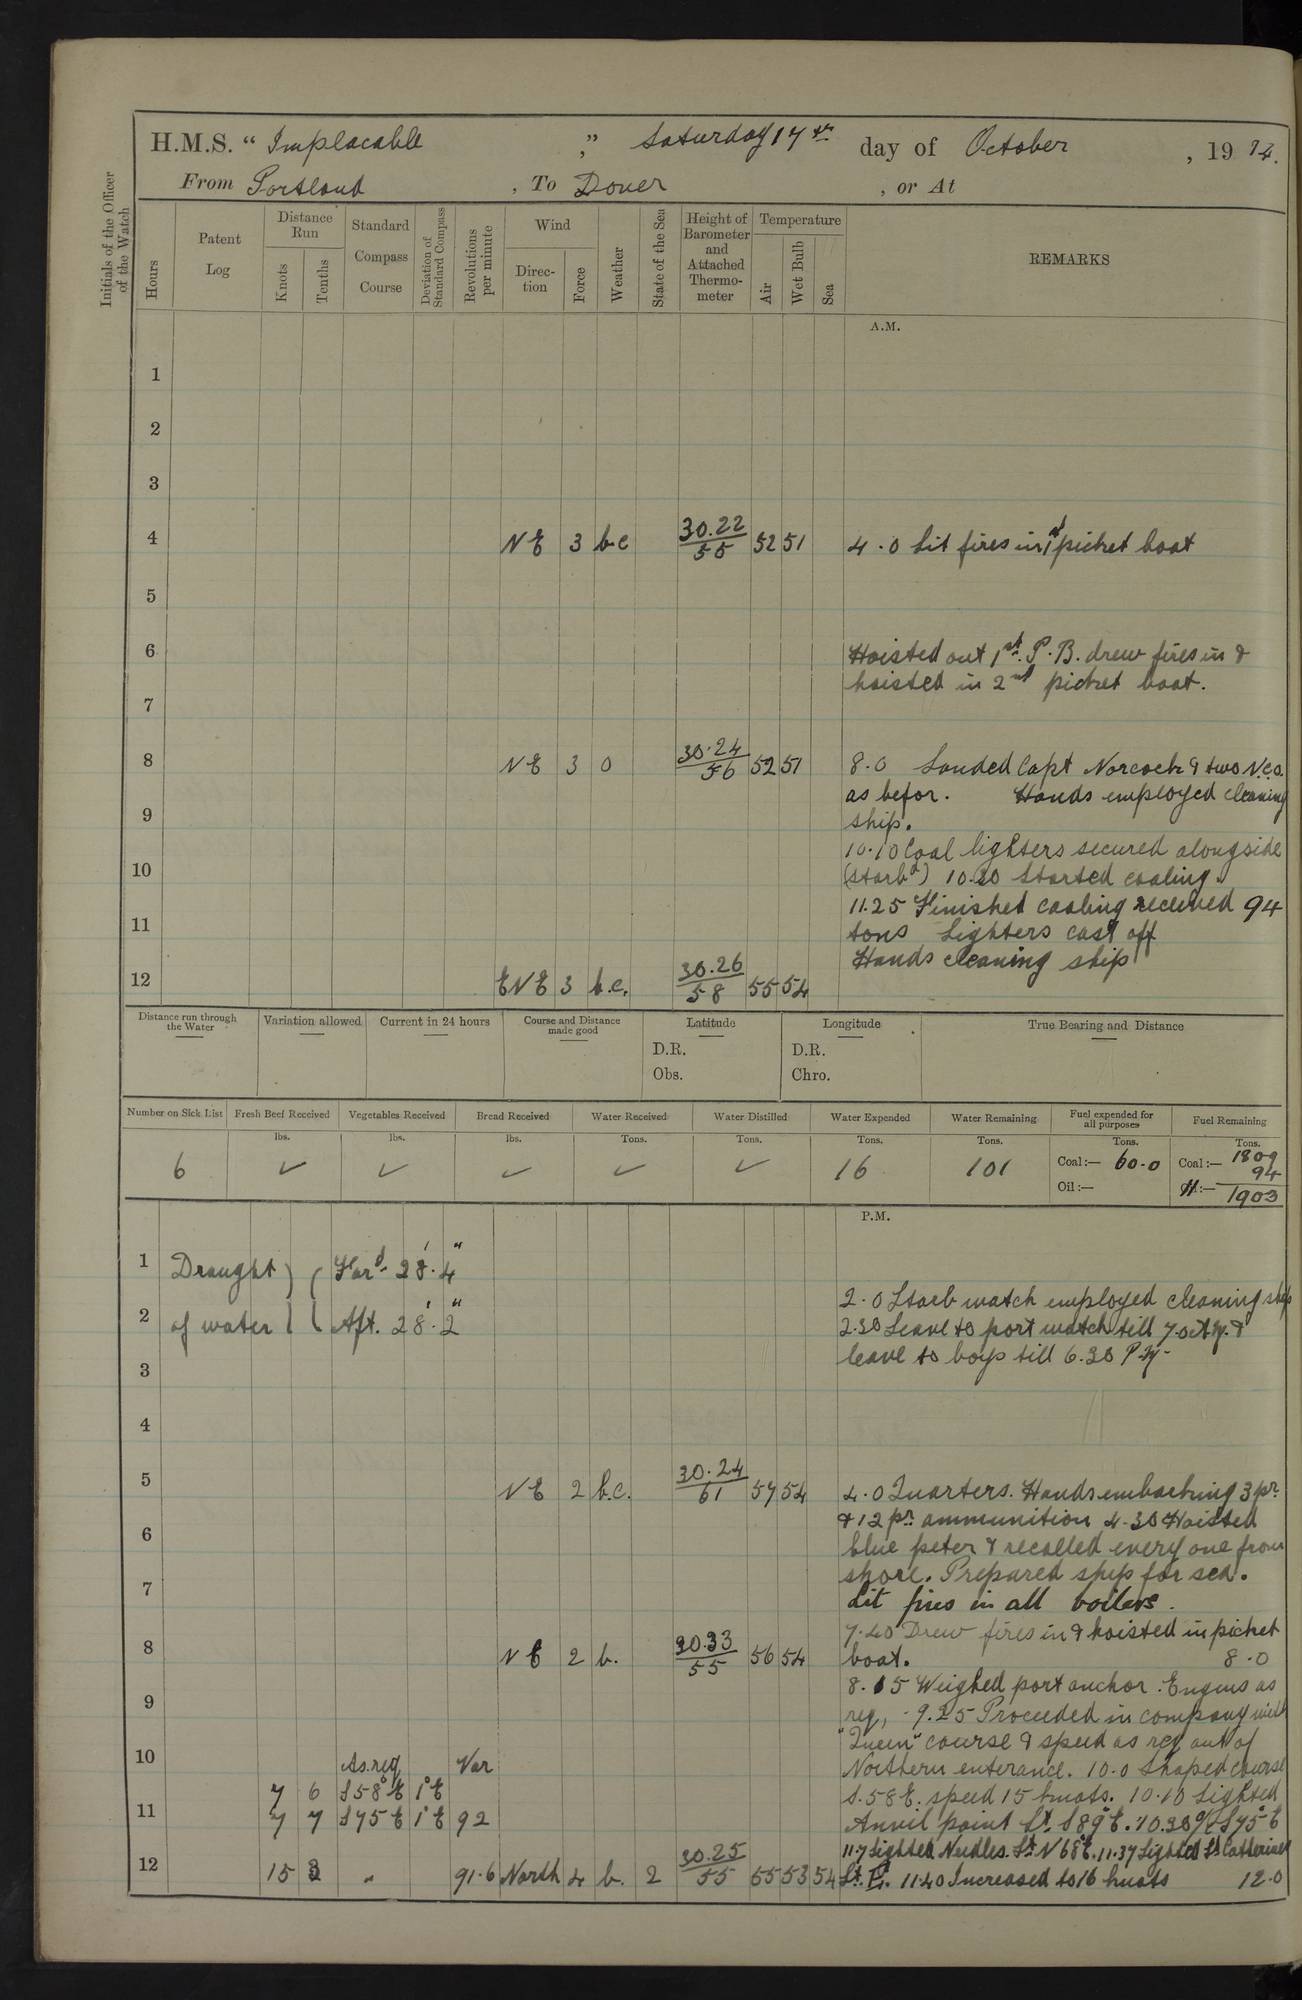 H.M.S. " Implacable " Saturday 17th day of October , 19 14.
From Portland , To Dover , or At
Initials of the Officer of the Watch
Hours
Patent Log
Distance Run
Knots
Tenths
Standard Compass Course
Deviation of Standard Compass
Revolutions per minute
Wind
Direction
Force
Weather
State of the Sea
Height of Barometer and Attached Thermometer
Temperature
Air
Wet Bulb
Sea
REMARKS
A.M.
1
2
3
4 NE 3 b.c 30.22 / 55 52 51 4.0 Lit fires in 1st picket boat
5
6 Hoisted out 1st. P.B. drew fires in &
hoisted in 2nd picket boat.
7
8 NE 3 o 30.24 / 56 52 51 8.0 Landed Capt Norcock & two N.C.O.
as befor. Hands employed cleaning
9 ship.
10.10 Coal lighters secured alongside
10 (starbd) 10.20 Started coaling.
11.25 Finished coaling received 94
11 tons Lighters cast off
Hands cleaning ship
12 ENE 3 b.c. 30.26 / 58 55 54
Distance run through the Water
Variation allowed
Current in 24 hours
Course and Distance made good
Latitude
D.R.
Obs.
Longitude
D.R.
Chro.
True Bearing and Distance
Number on Sick List
Fresh Beef Received
Vegetables Received
Bread Received
Water Received
Water Distilled
Water Expended
Water Remaining
Fuel expended for all purposes
Fuel Remaining
lbs. lbs. lbs. Tons. Tons. Tons. Tons. Tons. Tons.
6 ✓ ✓ ✓ ✓ ✓ 16 101 Coal:— 60.0 Coal:— 1809
94
Oil:— 1903
P.M.
1 Draught ) ( Ford. 28'. 4"
2 of water ) ( Aft. 28'. 2" 2.0 Starb watch employed cleaning ship
2.30 Leave to port watch till 7.0 A.M. &
3 leave to boys till 6.30 P.M.
4
5 NE 2 b.c. 30.24 / 61 57 54 4.0 Quarters. Hands embarking 3 pr.
& 12 pr. ammunition 4.30 Hoisted
6 blue peter & recalled every one from
shore. Prepared ship for sea.
7 Lit fires in all boilers.
7.40 Drew fires in & hoisted in picket
8 NE 2 b. 30.33 / 55 56 54 boat. 8.0
8.15 Weighed port anchor. Engines as
9 req, 9.25 Proceeded in company with
"Queen" course & speed as req out of
10 As.req Var Northern enterance. 10.0 Shaped course
7 6 S58°E 1°E S.58E. speed 15 knots. 10.10 Sighted
11 7 7 S75E 1°E 92 Anvil point Lt. S89°E. 10.30 a/c S75°E
11.7 Sighted Needles Lt N68°E. 11.37 Sighted St Catherines
12 15 " 91.6 North 4 b. 2 30.25 / 55 55 53 54 Lt. 11.40 Increased to 16 knots 12.0